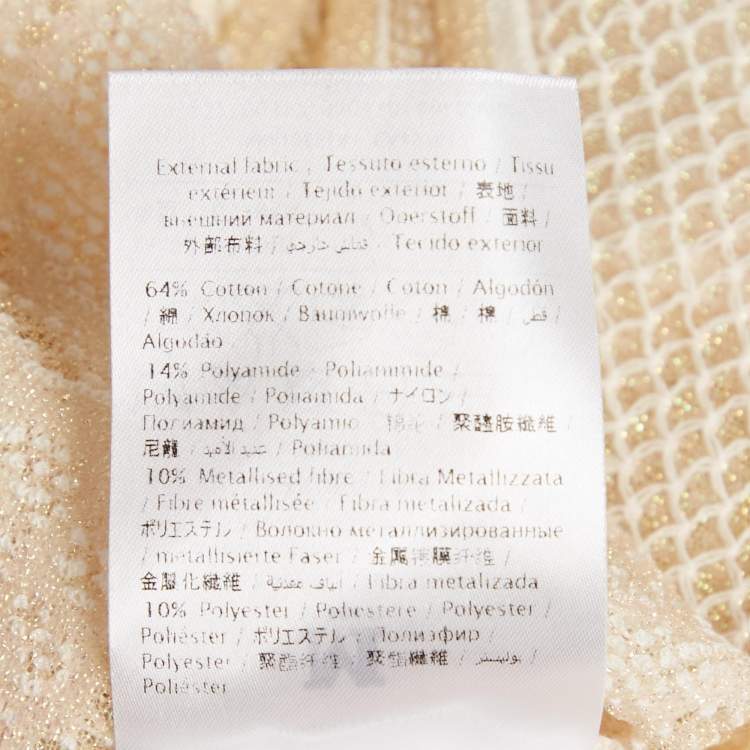 External fabric / Tessuto esterno / Tissu
extérieur / Tejido exterior / 表地 /
внешний материал / Oberstoff / 面料 /
外部布料 / قماش خارجي / Tecido exterior
64% Cotton / Cotone / Coton / Algodón
/ 綿 / Хлопок / Baumwolle / 棉 / 棉 / قطن /
Algodão
14% Polyamide / Poliammide /
Polyamide / Poliamida / ナイロン /
Полиамид / Polyamid / 聚醯胺纖維 /
尼龍 / Poliamida
10% Metallised fibre / Fibra Metallizzata
/ Fibre métallisée / Fibra metalizada /
ポリエステル / Волокно металлизированные
/ metallisierte Faser / 金属镀膜纤维 /
金屬化纖維 / ألياف معدنية / Fibra metalizada
10% Polyester / Poliestere / Polyester /
Poliéster / ポリエステル / Полиэфир /
Polyester / 聚酯纤维 / 聚酯纖維 / بوليستر /
Poliéster